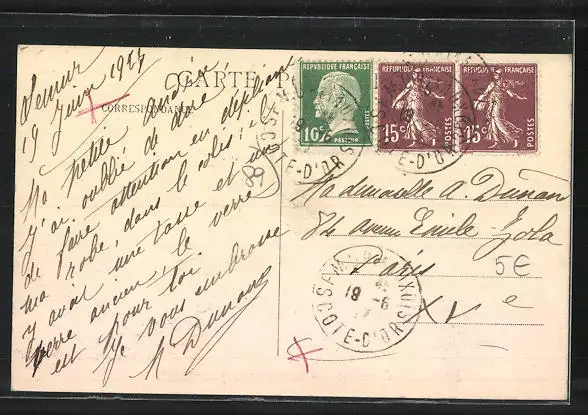 Semur
19 Juin 1925
CARTE P
CORRESPONDANCE
Ma petite
j'ai oublié de dire
de faire attention en dépliant
ma robe, dans le colis il
y avoir une tasse et un
verre ancien, le verre
est pour toi.
Je vous embrasse
A Dunan
REPUBLIQUE FRANÇAISE
10c
PASTEUR
REPUBLIQUE FRANÇAISE
15c
POSTES
REPUBLIQUE FRANÇAISE
15c
POSTES
89
Mademoiselle A. Dunan
84 avenue Emile-Zola
Paris
XVe
5€
SEMUR-EN-AUXOIS
COTE-D'OR
19 -6